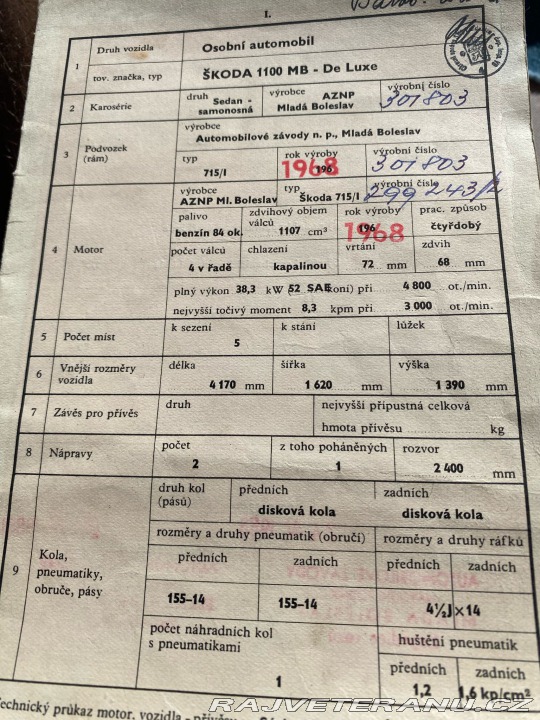 I.
1
Druh vozidla
Osobní automobil
tov. značka, typ
ŠKODA 1100 MB - De Luxe
2
Karosérie
druh
Sedan - samonosná
výrobce
AZNP
Mladá Boleslav
výrobní číslo
301803
3
Podvozek
(rám)
výrobce
Automobilové závody n. p., Mladá Boleslav
typ
715/I
rok výroby
196
1968
výrobní číslo
301803
4
Motor
výrobce
AZNP Ml. Boleslav
typ
Škoda 715/I
výrobní číslo
299 243/2
palivo
benzín 84 ok.
zdvihový objem
válců
1107 cm³
rok výroby
196
1968
prac. způsob
čtyřdobý
počet válců
4 v řadě
chlazení
kapalinou
vrtání
72 mm
zdvih
68 mm
plný výkon 38,3 kW (52 SAE koní) při 4 800 ot./min.
nejvyšší točivý moment 8,3 kpm při 3 000 ot./min.
5
Počet míst
k sezení
5
k stání
lůžek
6
Vnější rozměry
vozidla
délka
4 170 mm
šířka
1 620 mm
výška
1 390 mm
7
Závěs pro přívěs
druh
nejvyšší přípustná celková
hmota přívěsu kg
8
Nápravy
počet
2
z toho poháněných
1
rozvor
2 400 mm
9
Kola,
pneumatiky,
obruče, pásy
druh kol
(pásů)
předních
disková kola
zadních
disková kola
rozměry a druhy pneumatik (obručí)
rozměry a druhy ráfků
předních
155-14
zadních
155-14
předních
zadních
4½J×14
počet náhradních kol
s pneumatikami
1
huštění pneumatik
předních
1,2
zadních
1,6 kp/cm²
Technický průkaz motor. vozidla - přívěsu
RAJVETERANU.CZ